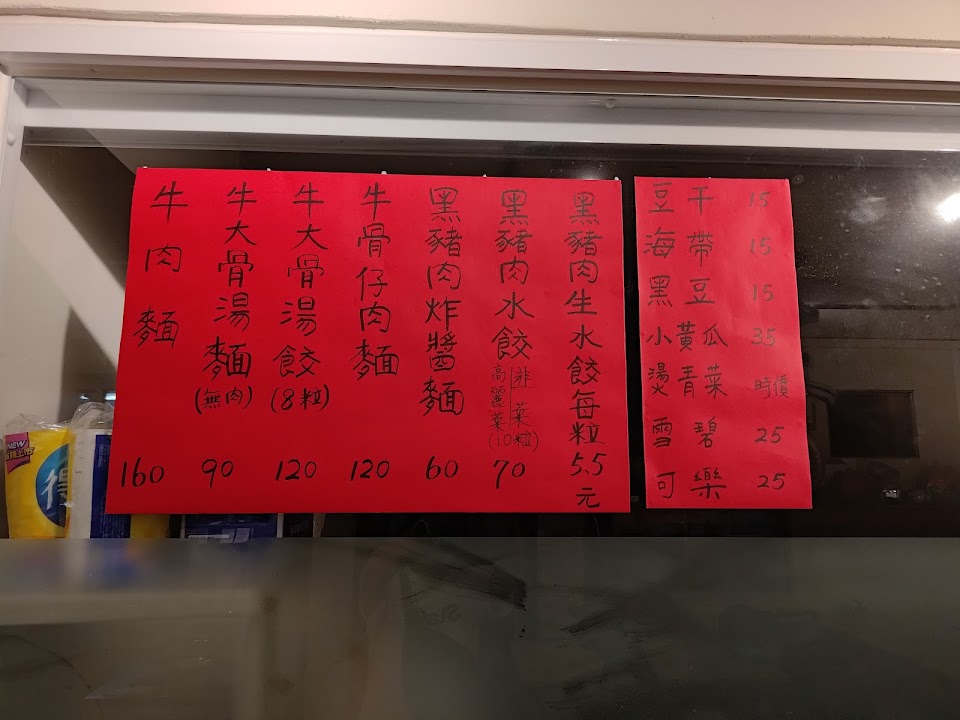 牛肉麵 160
牛大骨湯麵(無肉) 90
牛大骨湯餃(8粒) 120
牛骨仔肉麵 120
黑豬肉炸醬麵 60
黑豬肉水餃 高麗菜 韭菜 (10粒) 70
黑豬肉生水餃每粒5.5元
豆干 15
海帶 15
黑豆 15
小黃瓜 35
燙青菜 時價
雪碧 25
可樂 25
NEW
得